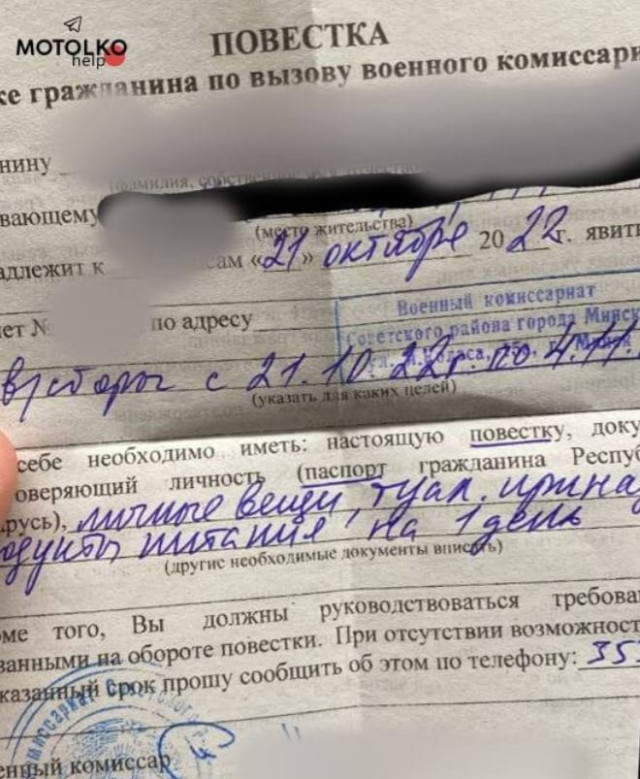 MOTOLKO
help
ПОВЕСТКА
ке гражданина по вызову военного комиссари
нину
(фамилия, собственное
вающему
(место жительства)
адлежит к сам «21» октября 2022г. явить
ет № по адресу
Военный комиссариат
Советского района города Минск
в/сборы с 21.10.22г. по 4.11.
(указать для каких целей)
себе необходимо иметь: настоящую повестку, доку
оверяющий личность (паспорт гражданина Респуб
русь), личные вещи, туал. принад
одукты питания на 1 день
(другие необходимые документы вписать)
ме того, Вы должны руководствоваться требова
занными на обороте повестки. При отсутствии возможност
казанный срок прошу сообщить об этом по телефону: 35
енный комиссар